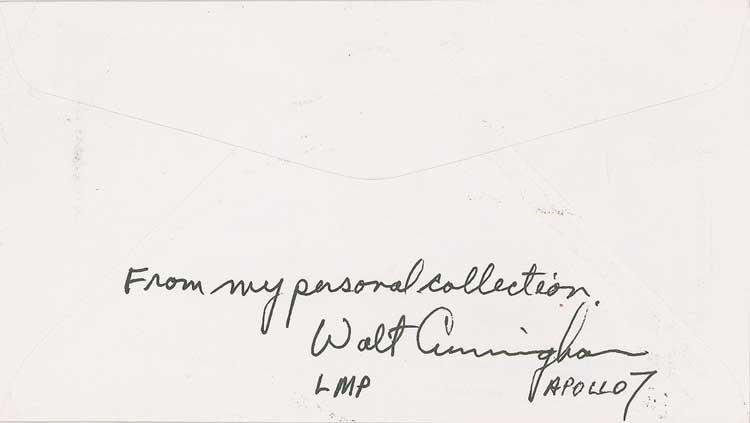 From my personal collection.
Walt Cunningham
LMP APOLLO 7